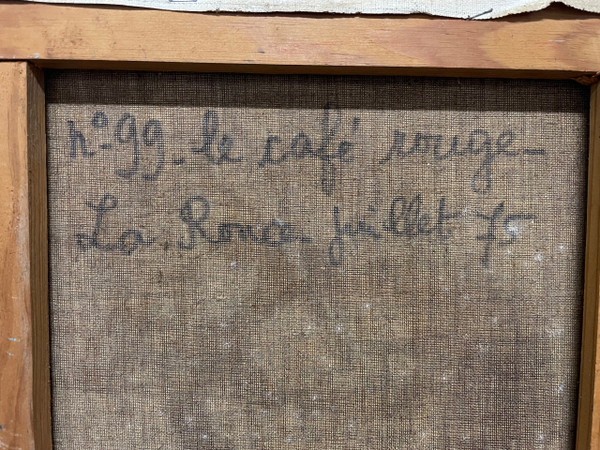 n°-99- le café rouge-
La Ronce- juillet 75